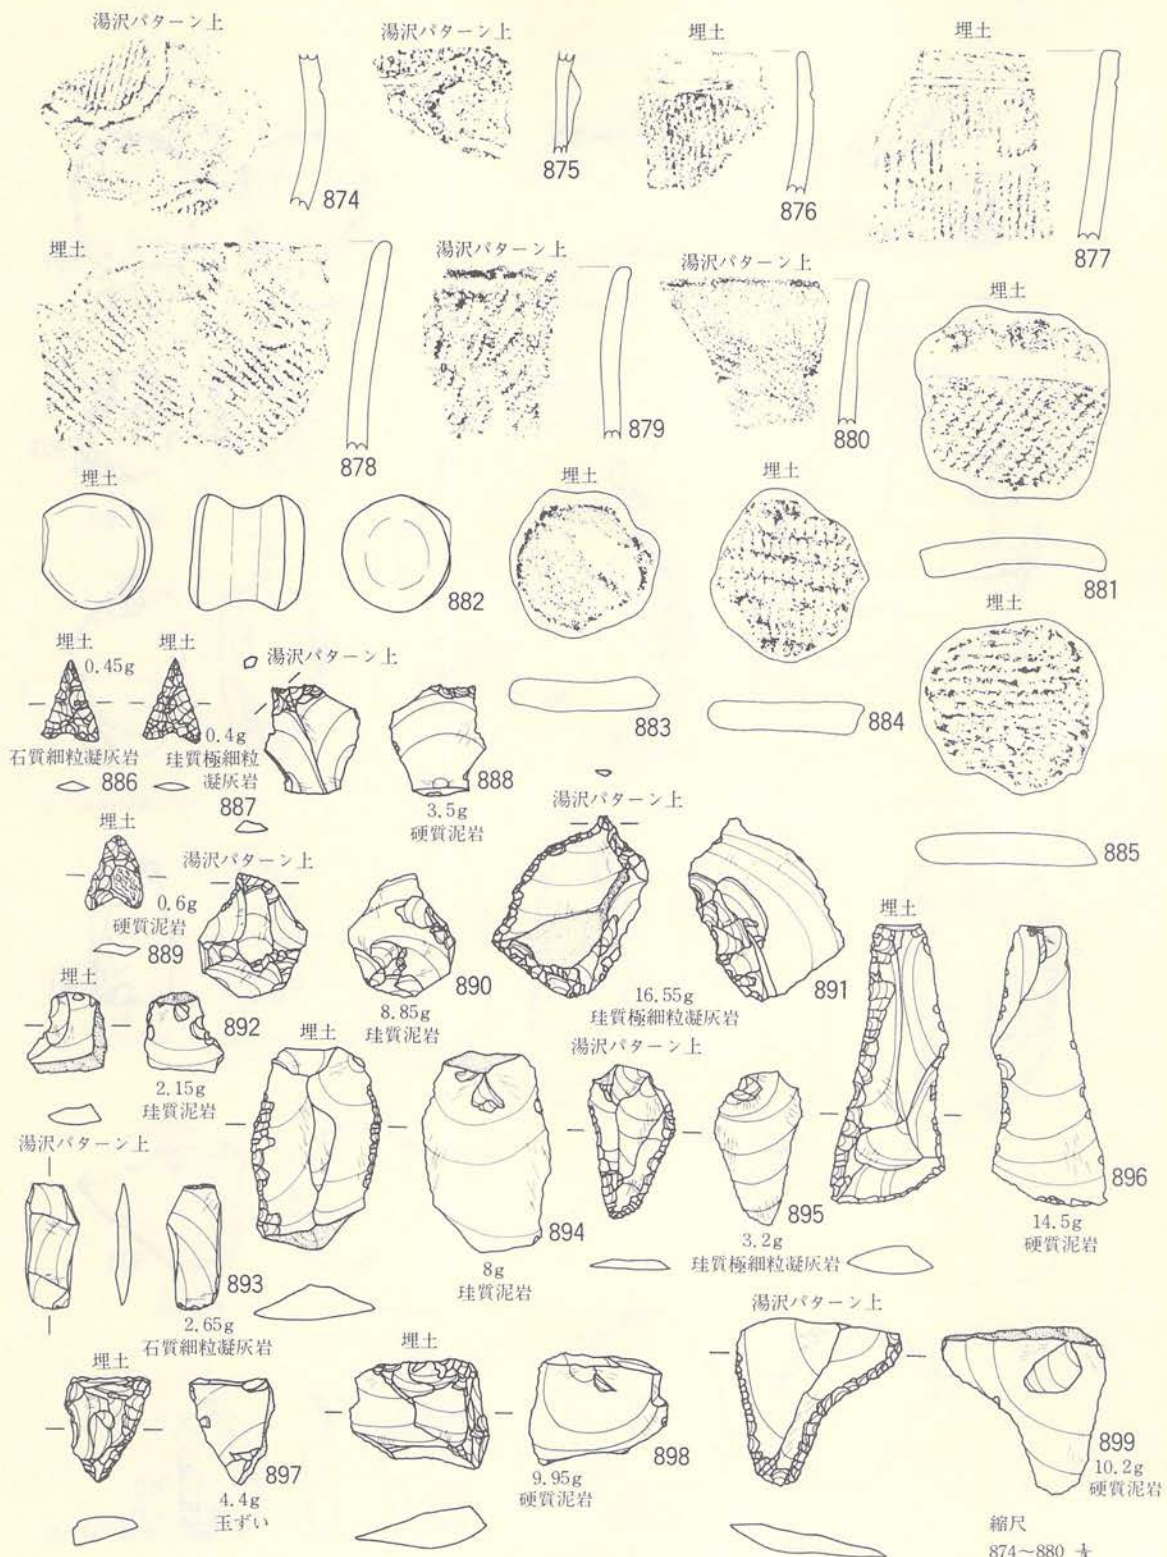 湯沢パターン上
874
湯沢パターン上
875
埋土
876
埋土
877
埋土
878
湯沢パターン上
879
湯沢パターン上
880
埋土
881
埋土
882
埋土
883
埋土
884
埋土
885
埋土
0.45g
石質細粒凝灰岩
886
埋土
0.4g
珪質極細粒
凝灰岩
887
湯沢パターン上
888
3.5g
硬質泥岩
埋土
0.6g
硬質泥岩
889
湯沢パターン上
890
8.85g
珪質泥岩
湯沢パターン上
891
16.55g
珪質極細粒凝灰岩
埋土
892
2.15g
珪質泥岩
湯沢パターン上
893
2.65g
石質細粒凝灰岩
埋土
894
8g
珪質泥岩
湯沢パターン上
895
3.2g
珪質極細粒凝灰岩
埋土
896
14.5g
硬質泥岩
埋土
897
4.4g
玉ずい
埋土
898
9.95g
硬質泥岩
湯沢パターン上
899
10.2g
硬質泥岩
縮尺
874～880